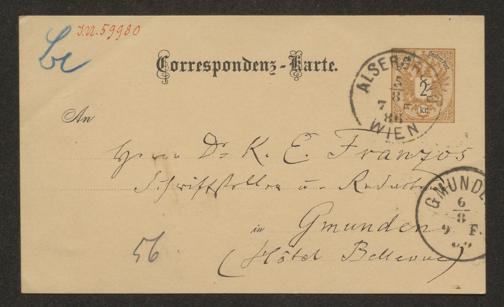 J.N. 59980
Correspondenz-Karte.
ALSERGRUND
5
8
7 F
86
WIEN
2
An
Herrn Dr. K. E. Franzos
Schriftsteller u. Redacteur
in Gmunden
(Hôtel Bellevue)
56
GMUNDEN
6
8
9 F.